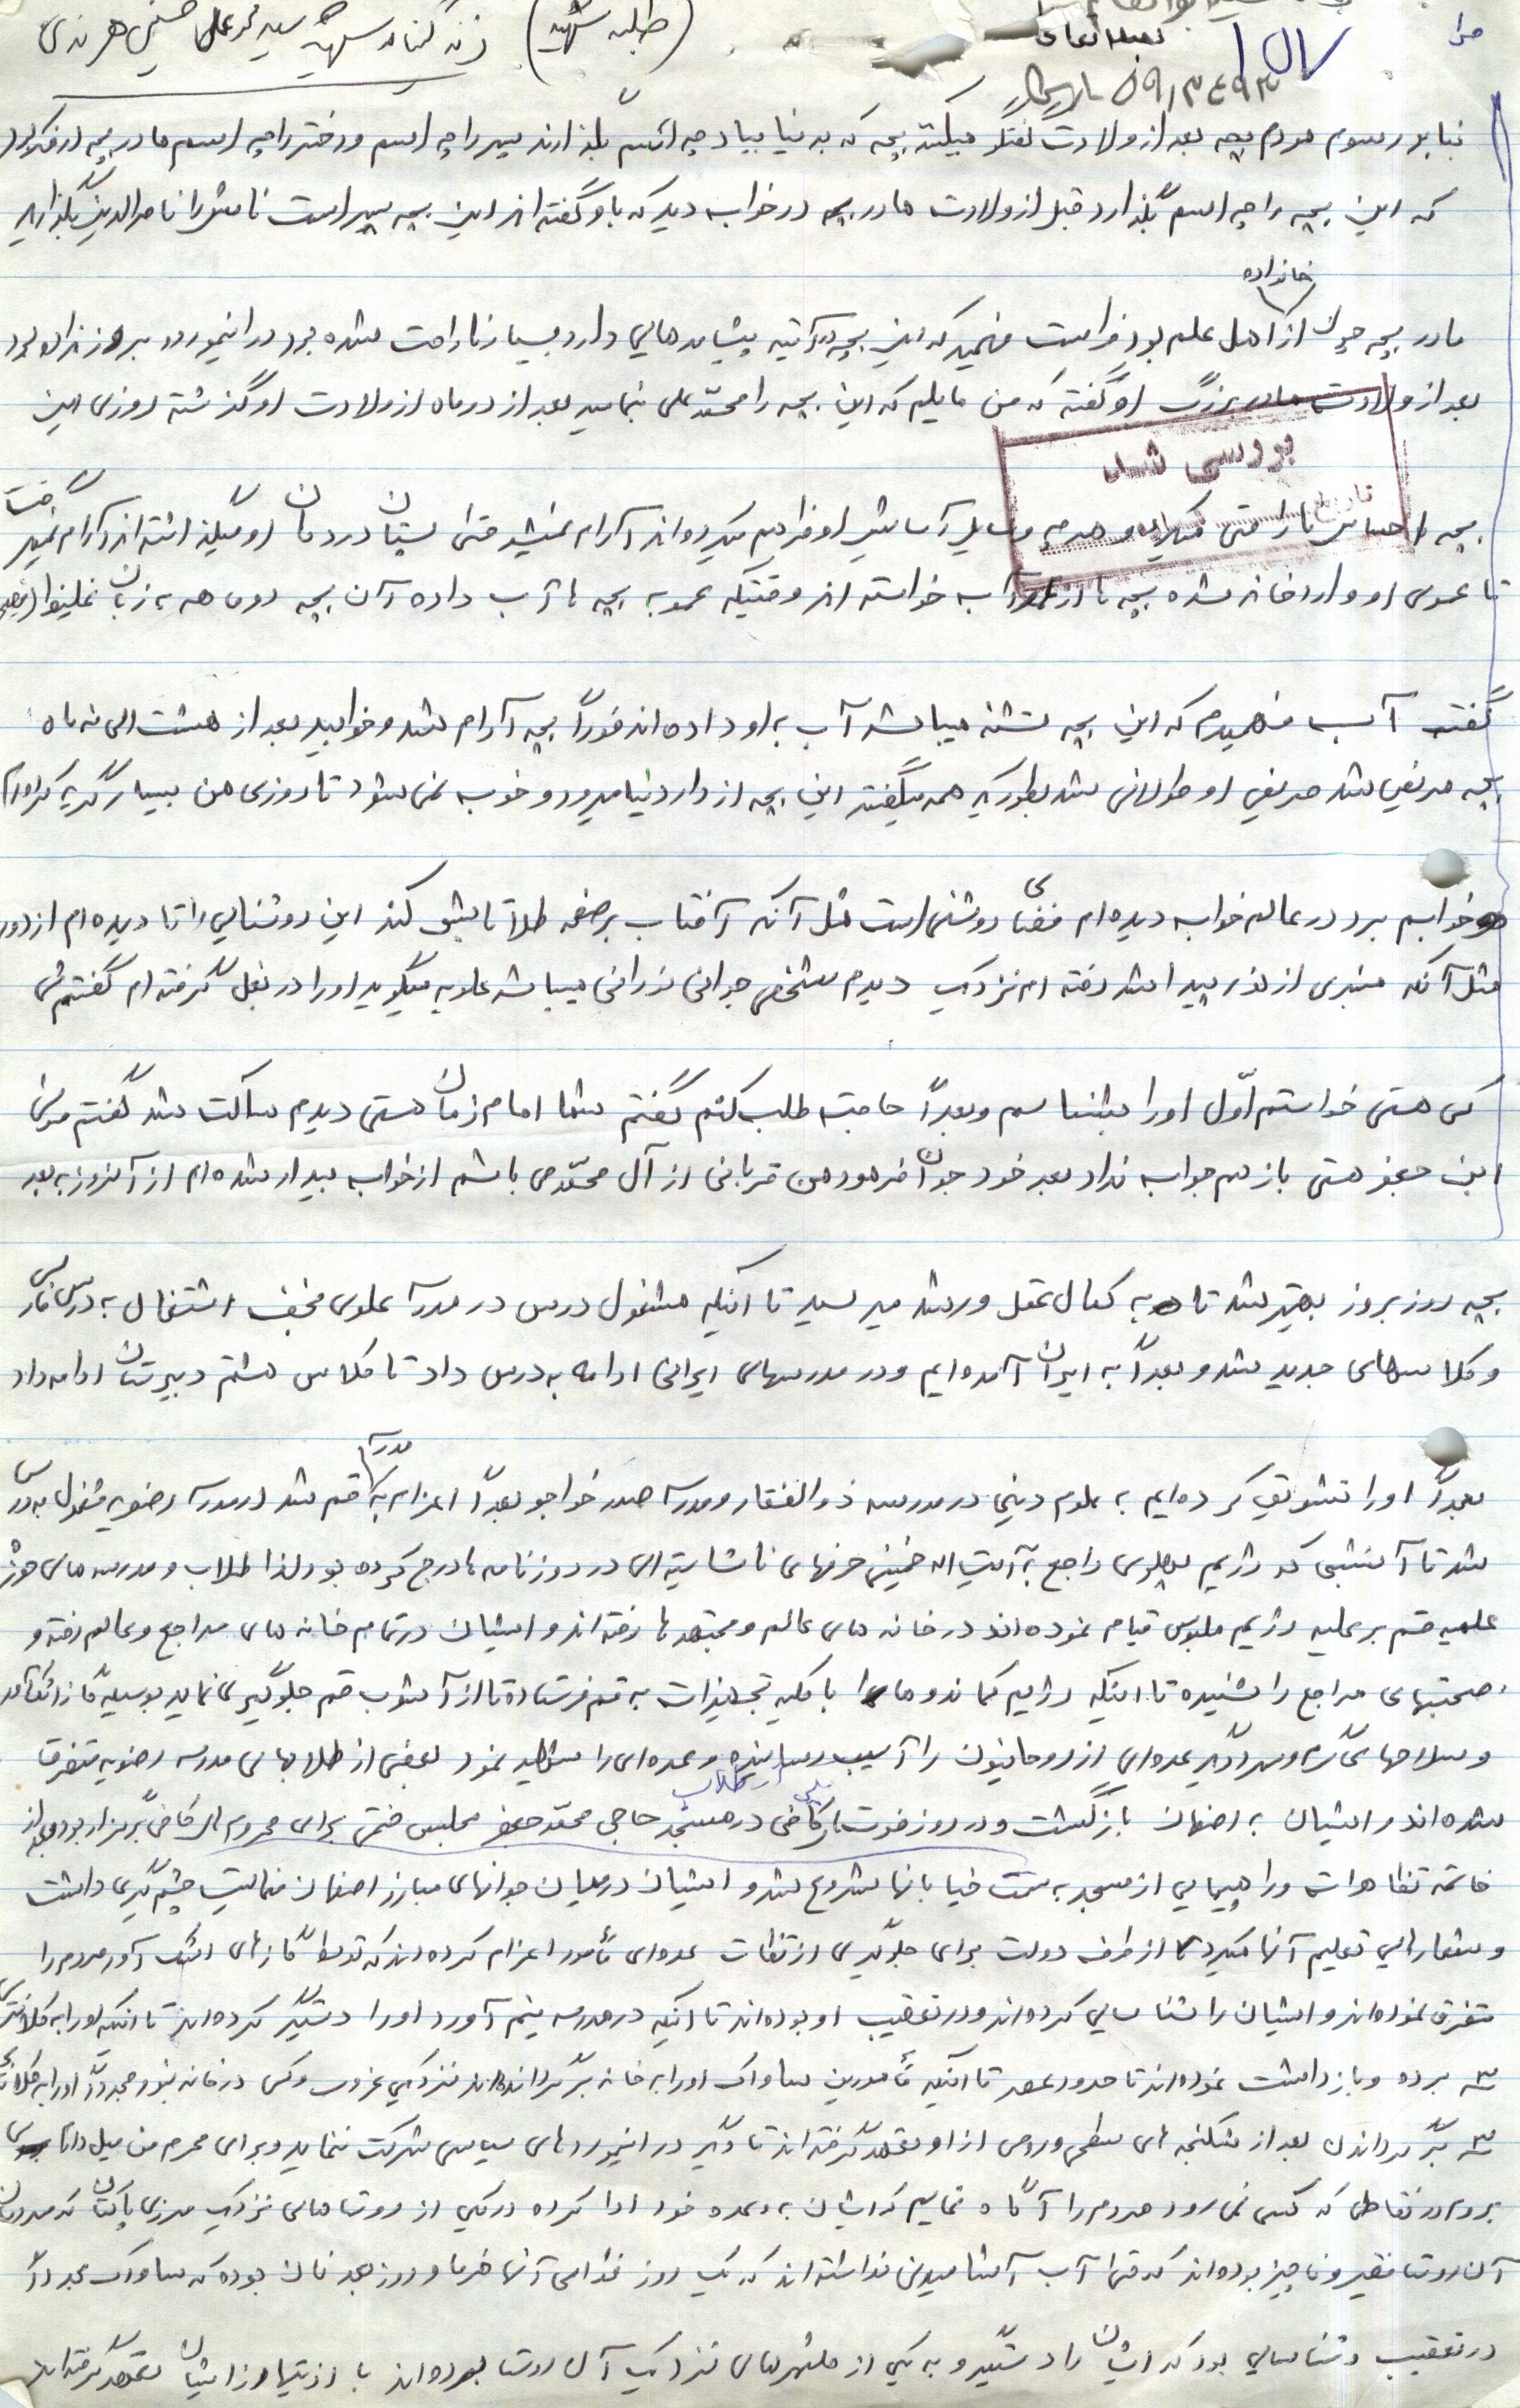 بسمه تعالی
زندگینامه شهید سید محمد علی حسینی هرندی (طلبه شهید)
بنا بر رسوم مردم بچه بعد از ولادت گفتگو میکنند بچه که به دنیا بیاد چه اسم بگذارند پسر را چه اسم و دختر را چه اسم مادر بچه در فکر بود
که این بچه را چه اسم بگذارد قبل از ولادت مادر بچه در خواب دید که باو گفته اند این بچه پسر است نامش را ناصرالدین بگذارید
مادر بچه چون از خانواده اهل علم بود فراست فهمید که این بچه در آتیه پیشامدهایی دارد بسیار ناراحت شده بود در اینمورد بروز نداده بود
بعد از ولادت مادر بزرگ او گفته که من مایلم که این بچه را محمّد علی بنامید بعد از دو ماه از ولادت او گذشته روزی این
بررسی شد
بچه احساس ناراحتی میکرد و هر چه وسایل آسایش او فراهم میکرده اند آرام نمیشد حتی پستان در دهان او میگذاشته اند آرام نمیگرفت
تا عموی او وارد خانه شده بچه از آب خواسته اند وقتیکه عمو به بچه آب داده آن بچه دو ماهه به زبان
گفت آب فهمیدم که این بچه تشنه میباشد آب به او داده اند فوراً بچه آرام شد و خوابید بعد از هشت الی نه ماه
بچه مریض شد مریضی او طولانی شد بطوریکه همه میگفتند این بچه از دار دنیا میرود و خوب نمی شود تا روزی من بسیار گریه کردم
خوابم برد در عالم خواب دیده ام فضای روشنی است مثل آنکه آفتاب بر صفحه طلا تابش کند این روشنایی را تا دیده ام از دور
مثل آنکه منبری از نور پیدا شد رفته ام نزدیک دیدم شخص جوانی نورانی میباشد علویه میگوید او را در بغل گرفته ام گفتم
کی هستی خواستم اوّل او را بشناسم و بعداً حاجت طلب کنم گفتم شما امام زمان هستی دیدم ساکت شد گفتم موسی
ابن جعفر هستی باز هم جواب نداد بعد خود جوان فرمود من قربانی از آل محمّد ص باشم از خواب بیدار شده ام از آنروز به بعد
بچه روز بروز بهتر شد تا به کمال عقل و رشد میرسید تا اینکه مشغول درس در مدرسه علوی نجف اشتغال به درس فارسی
و کلاسهای جدید شد و بعداً به ایران آمده ایم و در مدرسهای ایرانی ادامه به درس داد تا کلاس هشتم دبیرستان ادامه داد
بعداً او را تشویق کرده ایم به علوم دینی در مدرسه ذوالفقار و مدرسه صدر خواجو بعداً اعزام به مدرسه قم شد در مدرسه رضویه مشغول به درس
شد تا آنشبی که رژیم پهلوی راجع به آیت اله خمینی حرفهای ناشایسته ای در روزنامه ها درج کرده بود لذا طلاب و مدرسه های حوزه
علمیه قم بر علیه رژیم پلوی قیام نموده اند در خانه های عالم و مجتهدها رفته اند و ایشان در تمام خانه های مراجع و عالم رفته و
صحبتهای مراجع را شنیده تا اینکه رژیم کماندوها را با کلیه تجهیزات به قم فرستاده تا از آشوب قم جلوگیری نماید بوسیله گاز اشک آور
و سلاحهای گرم و سرد دیگر عده ای از روحانیون را آسیب رسانیده و عده ای را شهید نمود بعضی از طلابهای مدرسه رضویه متفرق
شده اند و ایشان به اصفهان بازگشت و در روز فوت یکی از طلاب در مسجد حاجی محمّد جعفر مجلس ختمی برای مرحوم برگزار بود بعد از
خاتمه تظاهرات و راهپیمایی از مسجد به سمت خیابانها شروع شد و ایشان در میان جوانهای مبارز اصفهان فعالیت چشمگیری داشت
و شعارهایی تعلیم آنها میکرد از طرف دولت برای جلوگیری از تظاهرات عده ای مأمور اعزام کرده اند که توسط گازهای اشک آور مردم را
متفرق نموده اند و ایشان را شناسایی کرده اند و در تعقیب او بوده اند تا اینکه در مدرسه او را دستگیر کرده اند تا اینکه او را به کلانتری
۳ برده و بازداشت نموده اند تا حدود عصر تا اینکه مأمورین ساواک او را به خانه برگردانده اند نزدیکی غروب و کسی در خانه نبود مجدداً او را به کلانتری
۳ برگرداندن بعد از شکنجه های سطحی و روحی از او تعهد گرفته اند تا دیگر در اینموردهای سیاسی شرکت ننماید و برای محرم من میل دارم
بروم در نقاطی که کسی نمی رود مردم را آگاه نمایم که ایشان به وعده خود ادا کرده در یکی از روستاهای نزدیک مرزی پاکستان که مردمان
آن روستا فقیر و ناچیز بوده اند که حتی آب آشامیدنی نداشته اند که یک روز غذای آنها خرما و روز بعد نان بوده که ساواک مجدداً
در تعقیب و شناسایی بود که ایشان را دستگیر و به یکی از شهرهای نزدیک آن روستا برده اند با اذیتها از ایشان تعهد گرفته اند